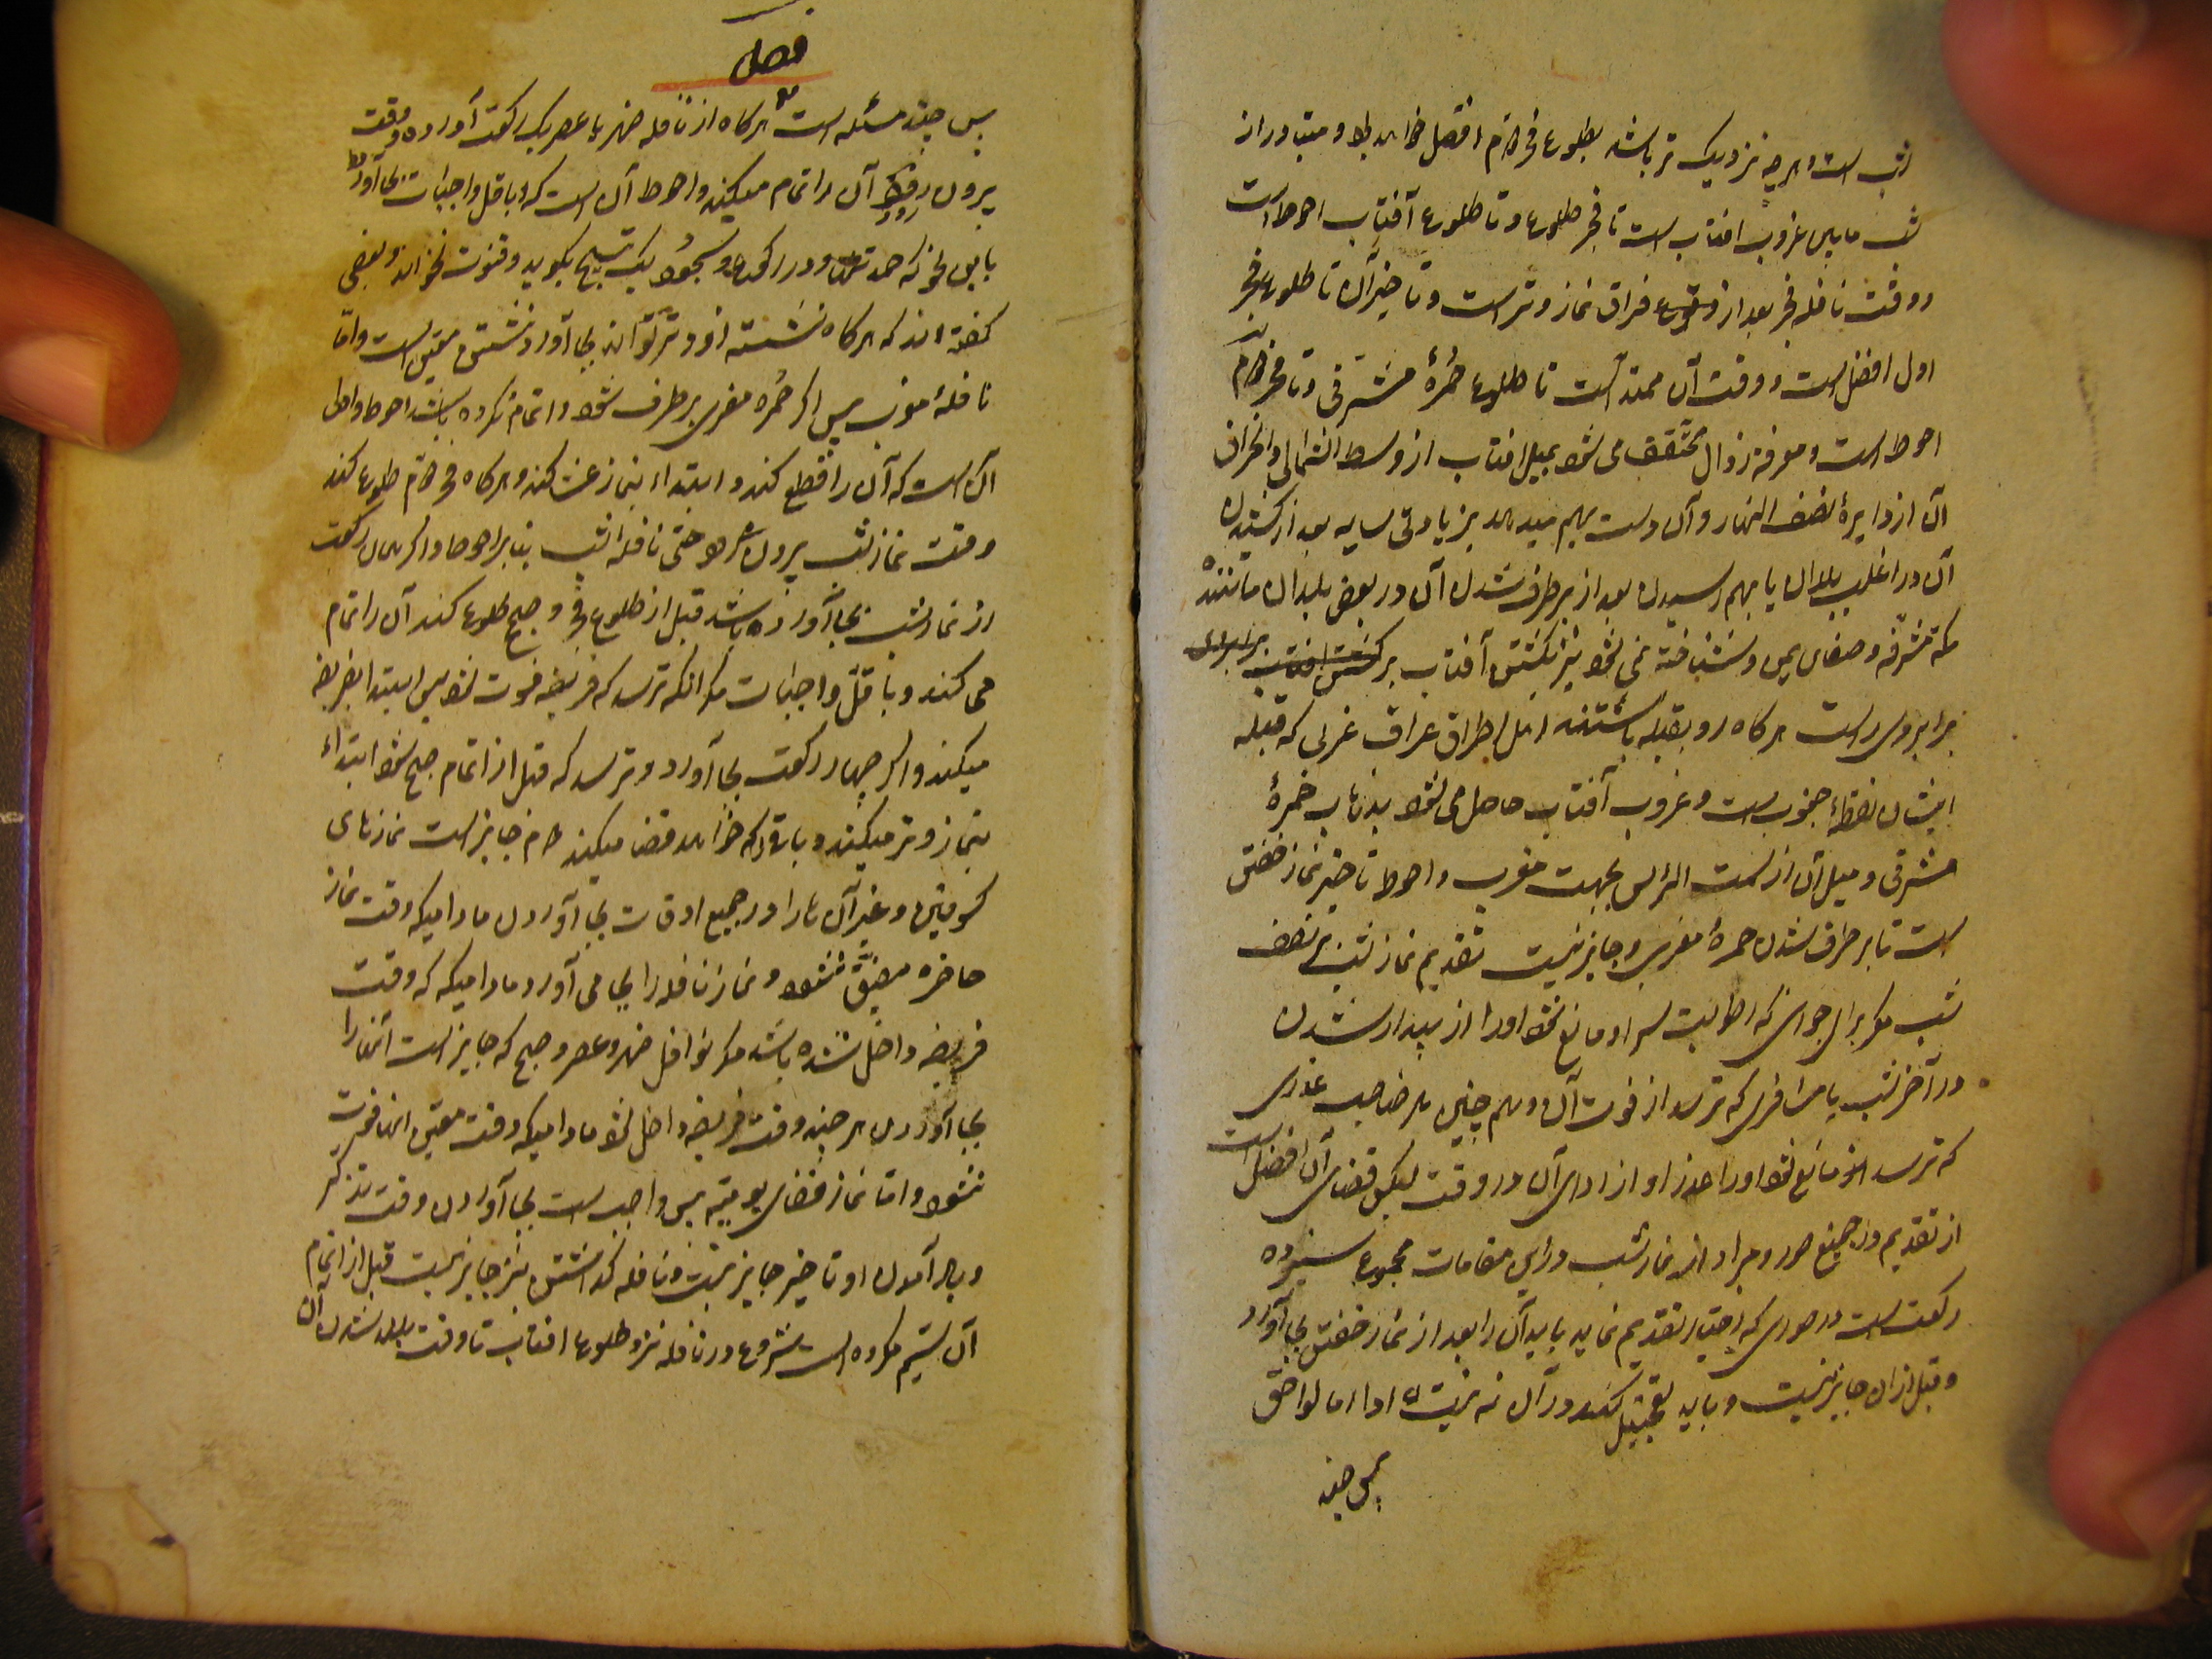 شب است و هر چه نزدیک تر باشد بطلوع فجر دوم افضل خواهد بود و متبادر از
شب مابین غروب افتاب است تا فجر طلوع و تا طلوع آفتاب احوط است
و وقت نافله فجر بعد از فراق نماز وتر است و تاخیر آن تا طلوع فجر
اول افضل است و وقت آن ممتد است تا طلوع حُمرۀ مشرقی و تا فجر دوم
احوط است و معرفة زوال محقق می شود بمیل افتاب از وسط السّما و انحراف
آن از دایرۀ نصف النهار و آن دست بهم میدهد بزیادتی سایه بعد از کشیدن
آن در اغلب بلدان یا بهم رسیدن بعد از برطرف شدن آن در بعض بلدان مانند
مکّه مشرّفه و صنعای یمن و شناخته می شود نیز بکشتن آفتاب بر
برابروی راست هر کاه رو بقبله باشند اهل اطراق عراق غربی که قبله
ایشان نقطۀ جنوب است و غروب آفتاب حاصل می شود بذهاب حُمرۀ
مشرقی و میل آن از سمت الرأس بجهت مغرب و احوط تاخیر نماز خفتن
است تا برطرف شدن حمرۀ مغربی و جایز نیست تقدیم نماز شب بر نصف
شب مکر برای جوانی که رطوبت سر او مانع شود او را از بیدار شدن
در آخر شب یا مسافری که ترسد از فوت آن و هم چنین هر صاحب عذری
که ترسد مانع شود او را عذر او از ادای آن در وقت لیکن قضای آن افضل است
از تقدیم در جمیع صور و مراد از نماز شب در این مقامات مجموع سیزده
رکعت است در صورتی که اختیار تقدیم نماید باید آن را بعد از نماز خفتن بجا آورد
و قبل از ان جایز نیست و باید تعجیل کند در آن نه نیت ادا اما لواحق
پس چند
فصل
پس چند مسئله است هر کاه از نافله ظهر یا عصر یک رکعت آورده وقت
بیرون رود آن را تمام میکند و احوط آن است که باقل واجبات بجا آورد
باین نحو که حمد تنها و در رکوع و سجود یک تسبیح بکوید و قنوت نخواند و بعضی
کفته اند که هر کاه نشسته زود تر تواند بجا آورد نشستن متعین است و امّا
نافلۀ مغرب پس اکر حُمره مغربی برطرف شود و اتمام نکرده باشد احوط و اولی
آن است که آن را قطع کند و ابتداء بنماز عشا کند و هر کاه فجر دوم طلوع کند
وقت نماز شب بیرون رود حتی نافله شب بنا بر احوط و اکر چهار رکعت
از نماز شب بجا آورده باشد قبل از طلوع فجر و صبح طلوع کند آن را تمام
می کند و باقلّ واجبات مکر انکه ترسد که فریضه فوت شود پس ابتدا بفریضه
میکند و اکر چهار رکعت بجا آورد و ترسد که قبل از اتمام صبح شود ابتداء
بنماز وتر میکند و باقی را که خواهد قضا میکند دوم جایز است نمازهای
کسوفین و غیر آن ها را در جمیع اوقات بجا آوردن مادامیکه وقت نماز
حاضره مضیّق نشود و نماز نافله را بجا می آورد مادامیکه که وقت
فریضه داخل نشده باشد مکر نوافل ظهر و عصر و صبح که جایز است آنها را
بجا آوردن هر چند وقت فریضه داخل شود مادامیکه وقت معین انها فوت
نشود و امّا نماز قضای یومیّه پس واجب است بجا آوردن وقت تذکر
و بیاد آمدن او تا خیر جایز نیست و نافله کذاشتن نیز جایز نیست قبل از اتمام
آن سیّم مکروه است شروع در نافله نزد طلوع افتاب تا وقت بلند شدن آن